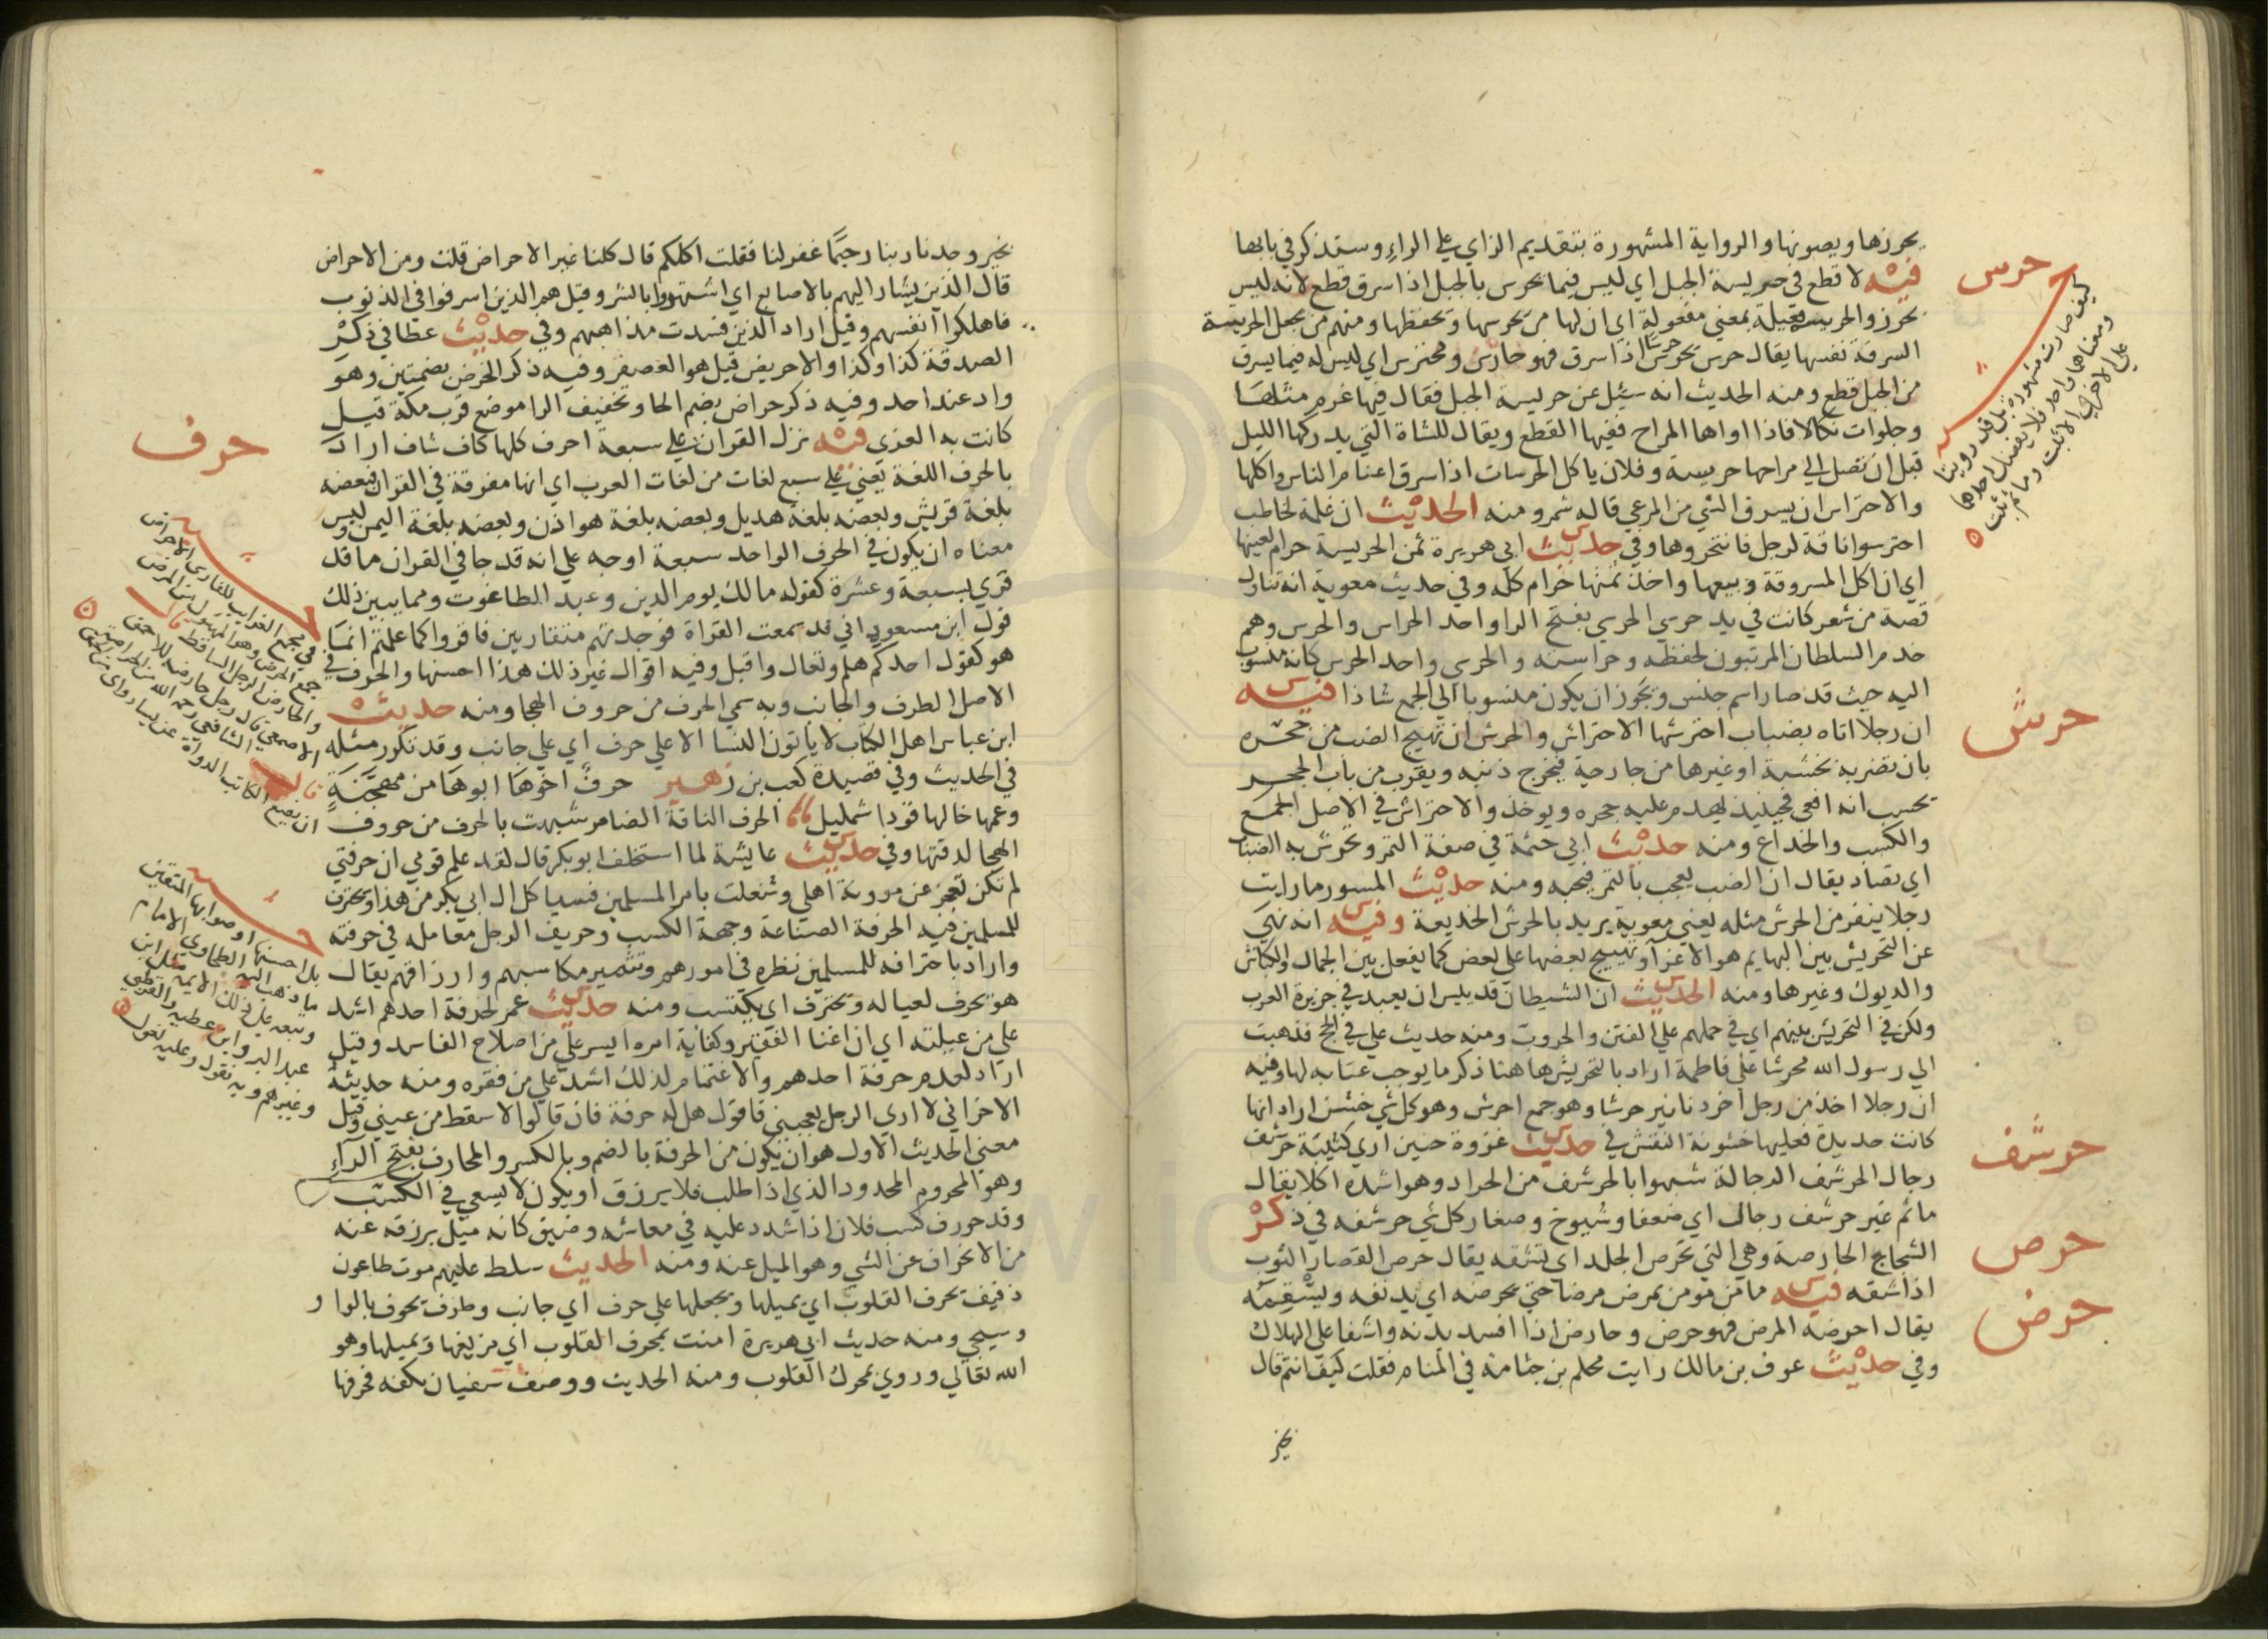 يحرزها ويصونها والرواية المشهورة بتقديم الزاي علي الراء وستذكر في بابها
حرس
فيه لا قطع في حريسة الجبل اي ليس فيما يحرس بالجبل اذا سرق قطع لانه ليس
بحرز والحريسة فعيلة بمعني مفعولة اي ان لها من يحرسها ويحفظها ومنهم من يجعل الحريسة
السرقة نفسها يقال حرس يحرس حرسا اذا سرق فهو حارس ومحترس اي ليس له فيما يسرق
من الجبل قطع ومنه الحديث انه سئل عن حريسة الجبل فقال فيها غرم مثلها
وجلوات نكالا فاذا اواها المراح ففيها القطع ويقال للشاة التي يدركها الليل
قبل ان تصل الي مراحها حريسة وفلان ياكل الحرسات اذا سرق اغنام الناس واكلها
والاحتراس ان يسرق الشي من المرعي قاله شمر ومنه الحديث ان غلمة لحاطب
احترسوا ناقة لرجل فانتحروها وفي حديث ابي هريرة ثمن الحريسة حرام لعينها
اي ان اكل المسروقة وبيعها واخذ ثمنها حرام كله وفي حديث معوية انه تناول
قصة من شعر كانت في يد حرسي الحرسي بفتح الرا واحد الحراس والحرس وهم
خدم السلطان المرتبون لحفظه وحراسته والحرسي واحد الحرس كانه منسوب
اليه حيث قد صار اسم جنس ويجوز ان يكون منسوبا الي الجمع شاذا فيه
حرش
ان رجلا اتاه بضباب احترشها الاحتراش والحرش ان تهيج الضب من جحره
بان تضربه بخشبة او غيرها من خارجه فيخرج ذنبه ويقرب من باب الجحر
يحسب انه افعي فحينيذ يهدم عليه جحره ويوخذ والاحتراش في الاصل الجمع
والكسب والخداع ومنه حديث ابي حثمة في صفة التمر وتحرش به الضباب
اي تصاد يقال ان الضب يعجب بالتمر فيحبه ومنه حديث المسور ما رايت
رجلا ينفر من الحرش مثله يعني معوية يريد بالحرش الخديعة وفيه انه نهي
عن التحريش بين البهايم هو الاغرا وتهييج بعضها علي بعض كما يفعل بين الجمال والكباش
والديوك وغيرها ومنه الحديث ان الشيطان قد يئس ان يعبد في جزيرة العرب
ولكن في التحريش بينهم اي في حملهم علي الفتن والحروب ومنه حديث علي في الحج فذهبت
الي رسول الله محرشا علي فاطمة اراد بالتحريش هاهنا ذكر ما يوجب عتابه لها وفيه
ان رجلا اخذ من رجل اخر دنانير حرشا وهو جمع احرش وهو كل شي خشن اراد انها
حرشف
كانت جديدة فعليها خشونة النقش في حديث غزوة حنين اري كتيبة حرشف
رجال الحرشف الرجالة شبهوا بالحرشف من الجراد وهو اشده اكلا يقال
ما ثم غير حرشف رجال اي ضعفا وشيوخ وصغار كل شي حرشفه في ذكر
حرص
الشجاج الحارصة وهي التي تحرص الجلد اي تشقه يقال حرص القصار الثوب
حرض
اذا شقه فيه ما من مومن يمرض مرضا حتي يحرضه اي يدنفه ويسقمه
يقال احرضه المرض فهو حرض وحارض اذا افسد بدنه واشفا علي الهلاك
وفي حديث عوف بن مالك رايت محلم بن جثامة في المنام فقلت كيف انتم قال
بخير
كيف صارت مشهورة بل قد روينا
ومعناهما واحد فلا يفضل احدهما
علي الاخري
بخير وجدنا ربنا رحيما غفر لنا فقلت اكلكم قال كلنا غير الاحراض قلت ومن الاحراض
قال الذين يشار اليهم بالاصابع اي اشتهروا بالشر وقيل هم الذين اسرفوا في الذنوب
فاهلكوا انفسهم وقيل اراد الذين فسدت مذاهبهم وفي حديث عطا في ذكر
الصدقة كذا وكذا والاحريض قيل هو العصفر وفيه ذكر الحرض بضمتين وهو
واد عند احد وفيه ذكر حراض بضم الحا وتخفيف الرا موضع قرب مكة قيل
حرف
كانت به العزي فيه نزل القران علي سبعة احرف كلها كاف شاف اراد
بالحرف اللغة يعني علي سبع لغات من لغات العرب اي انها مفرقة في القران فبعضه
بلغة قريش وبعضه بلغة هذيل وبعضه بلغة هوازن وبعضه بلغة اليمن وليس
معناه ان يكون في الحرف الواحد سبعة اوجه علي انه قد جا في القران ما قد
قري بسبعة وعشرة كقوله مالك يوم الدين وعبد الطاغوت ومما يبين ذلك
قول ابن مسعود اني قد سمعت القراة فوجدتهم متقاربين فاقروا كما علمتم انما
هو كقول احدكم هلم وتعال واقبل وفيه اقوال غير ذلك هذا احسنها والحرف في
الاصل الطرف والجانب وبه سمي الحرف من حروف الهجا ومنه حديث
ابن عباس اهل الكتاب لا ياتون النسا الا علي حرف اي علي جانب وقد تكرر مثله
في الحديث وفي قصيدة كعب بن زهير حرف اخوها ابوها من مهجنة
وعمها خالها قودا شمليل الحرف الناقة الضامر شبهت بالحرف من حروف
الهجا لدقتها وفي حديث عايشة لما استخلف ابو بكر قال لقد علم قومي ان حرفتي
لم تكن تعجز عن موونة اهلي وشغلت بامر المسلمين فسياكل ال ابي بكر من هذا ويحترف
للمسلمين فيه الحرفة الصناعة وجهة الكسب وحريف الرجل معامله في حرفته
واراد باحترافه للمسلمين نظره في امورهم وتثمير مكاسبهم وارزاقهم يقال
هو يحرف لعياله ويحترف اي يكتسب ومنه حديث عمر لحرفة احدهم اشد
علي من عيلته اي ان اغنا الفقير وكفاية امره ايسر علي من اصلاح الفاسد وقيل
اراد لعدم حرفة احدهم والاغتمام لذلك اشد علي من فقره ومنه حديثه
الاخر اني لا اري الرجل يعجبني فاقول هل له حرفة فان قالوا لا سقط من عيني وقيل
معني الحديث الاول هو ان يكون من الحرفة بالضم وبالكسر والمحارف بفتح الراء
وهو المحروم المحدود الذي اذا طلب فلا يرزق او يكون لا يسعي في الكسب
وقد حورف كسب فلان اذا شدد عليه في معاشه وضيق كانه ميل برزقه عنه
من الانحراف عن الشي وهو الميل عنه ومنه الحديث سلط عليهم موت طاعون
ذفيف يحرف القلوب اي يميلها ويجعلها علي حرف اي جانب وطرف يحوف بالواو
وسيجي ومنه حديث ابي هريرة امنت بمحرف القلوب اي مزيغها ومميلها وهو
الله تعالي وروي بمحرك القلوب ومنه الحديث ووصف سفيان بكفه فحرفها
في مجمع الغرايب للفارسي الاحراض
جمع الحرض وهو المهزول من المرض
والحارض الرجل الساقط قال
الاصمعي قال رجل حارضه للاحمق
بل احسنها وصوابها المتعين
ما ذهب اليه الطحاوي الامام
وتبعه علي ذلك الايمة مثل ابن
عبد البر وابن عطية والقرطبي
وغيرهم وبه نقول وعليه نعول